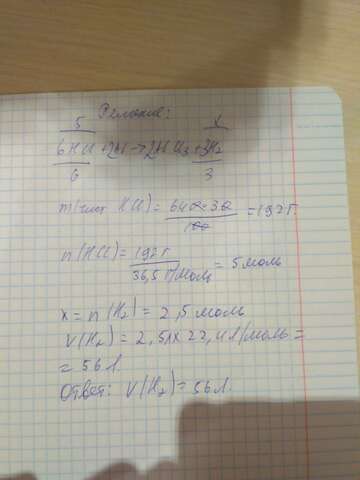 Решение:
5 x
6HCl + 2Al → 2AlCl3 + 3H2
6 3
m(чист HCl) = 640·30 = 192 г.
100
n(HCl) = 192 г = 5 моль
36,5 г/моль
x = n(H2) = 2,5 моль
V(H2) = 2,5 x 22,4 л/моль =
= 56 л.
Ответ: V(H2) = 56 л.